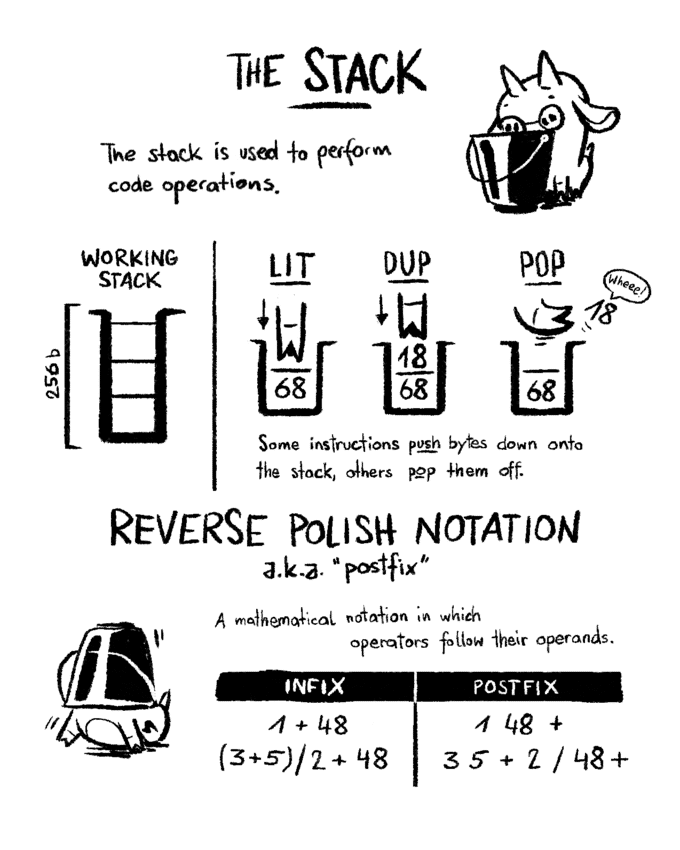 THE STACK
The stack is used to perform
code operations.
WORKING
STACK
256b
LIT
68
DUP
18
68
POP
Wheee!
18
68
Some instructions push bytes down onto
the stack, others pop them off.
REVERSE POLISH NOTATION
a.k.a. "postfix"
A mathematical notation in which
operators follow their operands.
INFIX POSTFIX
1 + 48 1 48 +
(3+5)/2 + 48 3 5 + 2 / 48 +